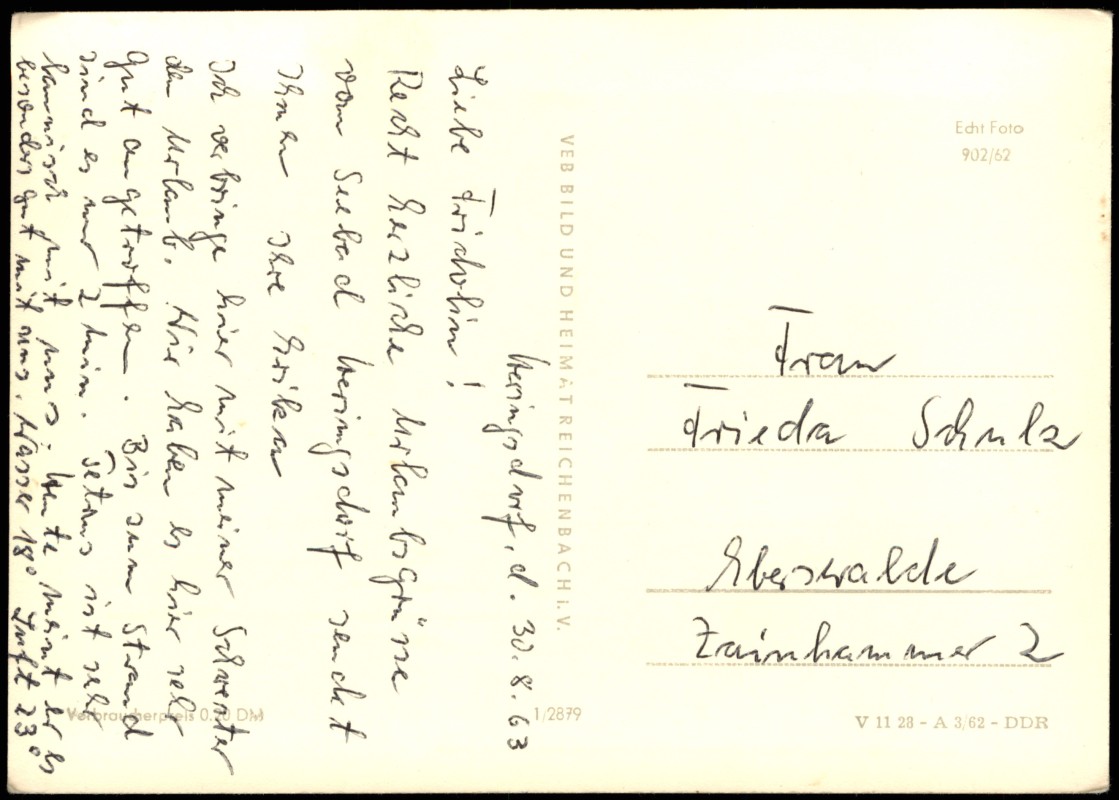 Heringsdorf, d. 30.8.63
Liebe Friedchin!
Recht herzliche Urlaubsgrüsse
vom Seebad Heringsdorf sendet
Ihnen Ihre Erika
Ich verbringe hier mit meiner Schwester
den Urlaub. Wir haben es hier sehr
gut angetroffen. Bis zum Strand
sind es nur 2 min. Petrus ist sehr
launisch mit uns. Heute meint er es
besonders gut mit uns. Wasser 18° Luft 23°
Verbraucherpreis 0.20 DM
1/2879
VEB BILD UND HEIMAT REICHENBACH i. V.
Echt Foto
902/62
Frau
Frieda Schulz
Eberswalde
Zainhammer 2
V 11 28 - A 3/62 - DDR